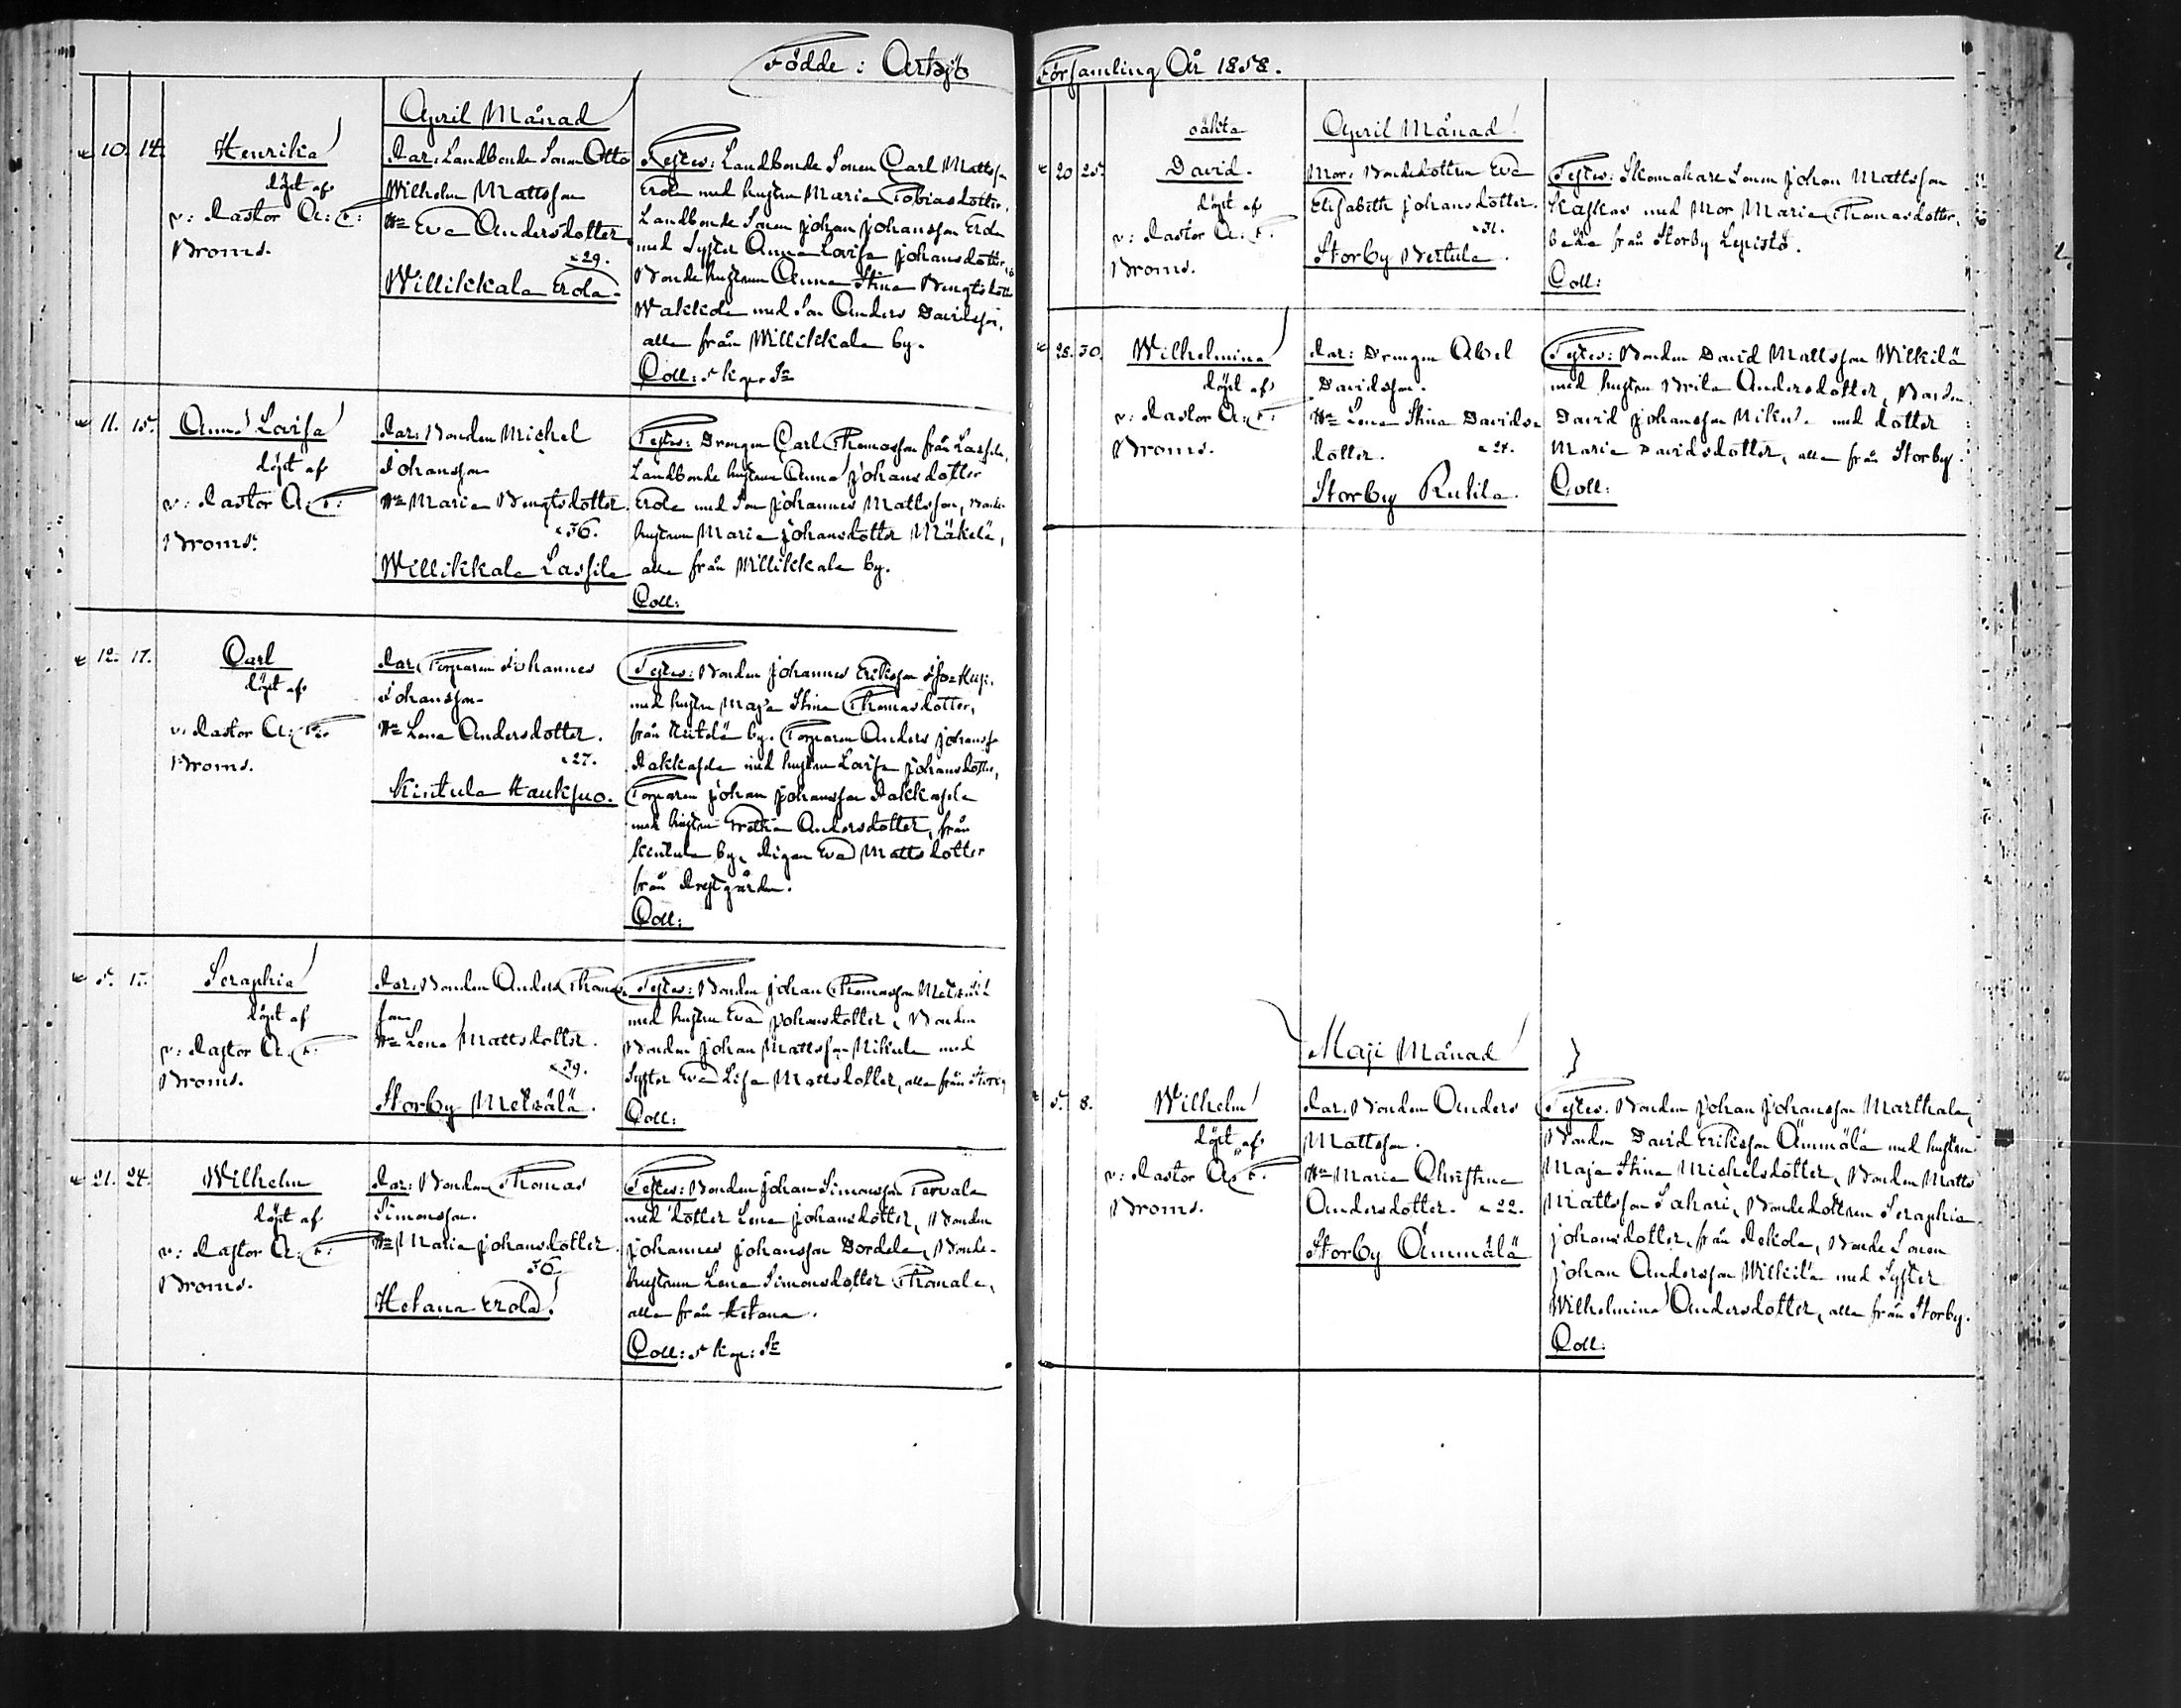 Födde: Artsjö
April Månad
10. 14. Henrika
döpt af
v: Pastor A: F:
Broms.
Par: Landbonde Sonen Otto
Wilhelm Mattsson
Hu Eva Andersdotter
29.
Willikkala Erola
Testes: Landbonde Sonen Carl Mattss.
Erola med hustru Maria Tobiasdotter,
Landbonde Sonen Johan Johansson Erola
med Syster Anna Lovisa Johansdotter,
Bonde hustrun Anna Stina Bengtsdott
Wakkola med Son Anders Davidsson,
alla från Willikkala by.
Coll:
11. 15. Anna Lovisa
döpt af
v: Pastor A: F:
Broms.
Par: Bonden Michel
Johansson
Hu Maria Bengtsdotter.
36.
Willikkala Lassila
Testes: Drengen Carl Thomasson från Lassila,
Landbonde hustrun Anna Johansdotter
Erola med Son Johannes Mattsson, Bonde
hustrun Maria Johansdotter Mäkelä,
alla från Willikkala by.
Coll:
12. 17. Carl
döpt af
v: Pastor A: F:
Broms.
Par: Torparen Johannes
Johansson
Hu Lena Andersdotter.
27.
Kintula Hauksuo.
Testes: Bonden Johannes Eriksson
med hustru Maja Stina Thomasdotter,
från by. Torparen Anders Johanss
med hustru Lovisa Johansdotter,
Torparen Johan Johansson
med hustru Andersdotter, från
Kintula by, Pigan Eva Mattsdotter
från Prestgården.
Coll:
5. 17. Seraphia
döpt af
v: Pastor A: F:
Broms.
Par: Bonden Anders Thomas
son
Hu Lena Mattsdotter.
39.
Storby Metsälä.
Testes: Bonden Johan Thomasson Metsälä
med hustru Eva Johansdotter, Bonden
Bonden Johan Mattsson Nikula med
Syster Eva Lisa Mattsdotter, alla från Storby
Coll:
21. 24. Wilhelm
döpt af
v: Pastor A: F:
Broms.
Par: Bonden Thomas
Simonsson.
Hu Maria Johansdotter.
36
Hetana Erola
Testes: Bonden Johan Simonsson Torvala
med dotter Lena Johansdotter, Bonden
Johannes Johansson Dordela, Bonde-
hustrun Lena Simonsdotter Thomala,
alla från Hetana.
Coll:
Församling År 1858.
oäkta
April Månad
20 25. David.
döpt af
v: Pastor A: F.
Broms.
Mor: Bondedottren Eva
Elisabeth Johansdotter.
31.
Storby Bertula.
Testes: Skomakare Sonen Johan Mattsson
med Mor Maria Thomasdotter,
båda från Storby Lepistö.
Coll:
28. 30. Wilhelmina
döpt af
v: Pastor A: F:
Broms.
Par: Drengen Abel
Davidsson.
Hu Lena Stina Davids-
dotter. 24.
Storby Rutila.
Testes: Bonden David Mattsson Wilkilä
med hustru Brita Andersdotter, Bonden
David Johansson Nikul. med dotter
Maria Davidsdotter, alla från Storby.
Coll:
Maji Månad
5. 8. Wilhelm
döpt af
v: Pastor A: F:
Broms.
Par: Bonden Anders
Mattsson.
Hu Maria Christina
Andersdotter. 22.
Storby Ämmälä
Testes. Bonden Johan Johansson Marttala,
Bonden David Eriksson Ämmälä med hustru
Maja Stina Michelsdotter, Bonden Matts
Mattsson Sakari, Bondedottren Seraphia
Johansdotter, från Pekola, Bonde Sonen
Johan Andersson Wilkilä med Syster
Wilhelmina Andersdotter, alla från Storby.
Coll: